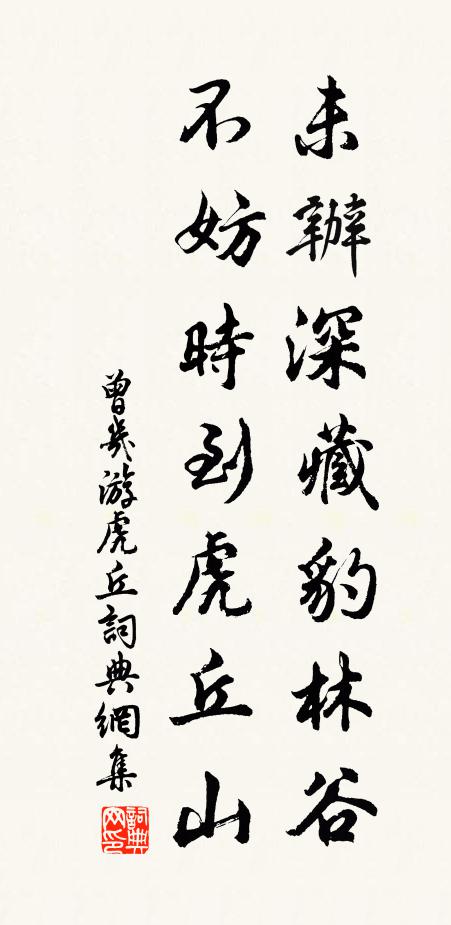 未辦深藏豹林谷
不妨時到虎丘山
曾幾游虎丘詞典網集
詞典網印